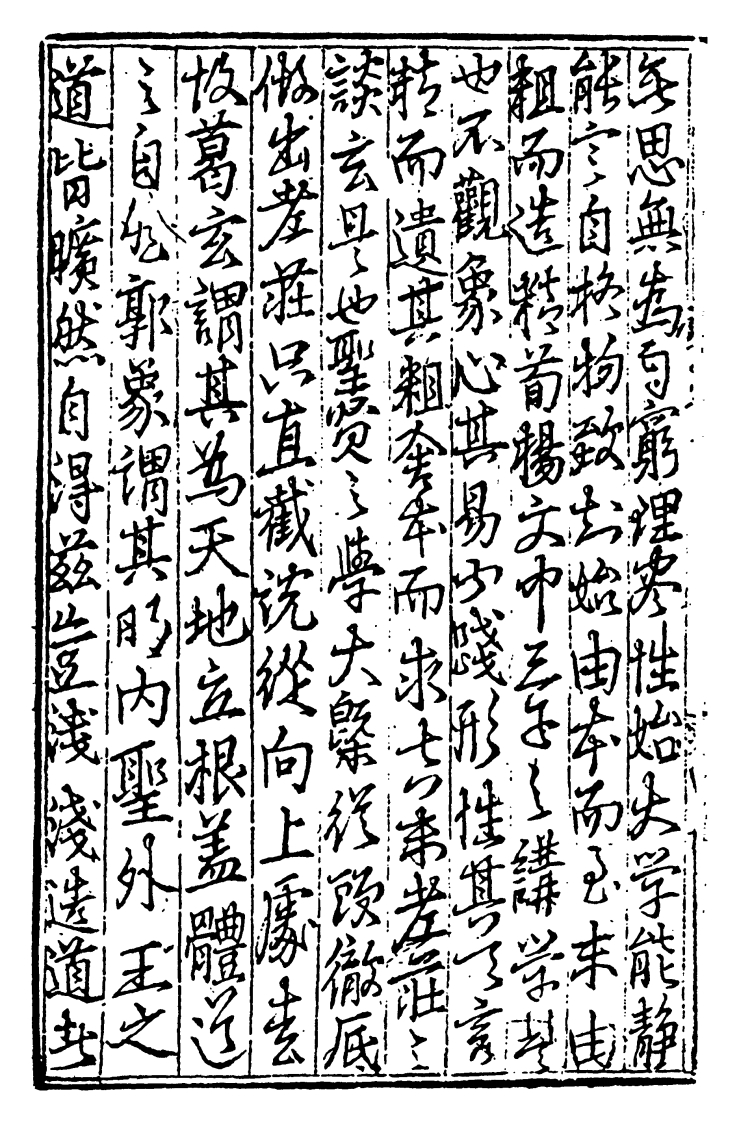 无思無為自窮理盡性始大学能静
能定自格物致知始由本而至末由
粗而造精荀楊文中三子之講学是
也不觀象心其易不踐形性其天言
精而遺其粗舍本而求其末老莊之
談玄是也聖賢之學大槩從頭徹底
做出老莊只直截說從向上處去
故葛玄謂其為天地立根蓋體道
之自然郭象謂其明内聖外王之
道皆曠然自得兹豈淺淺造道者